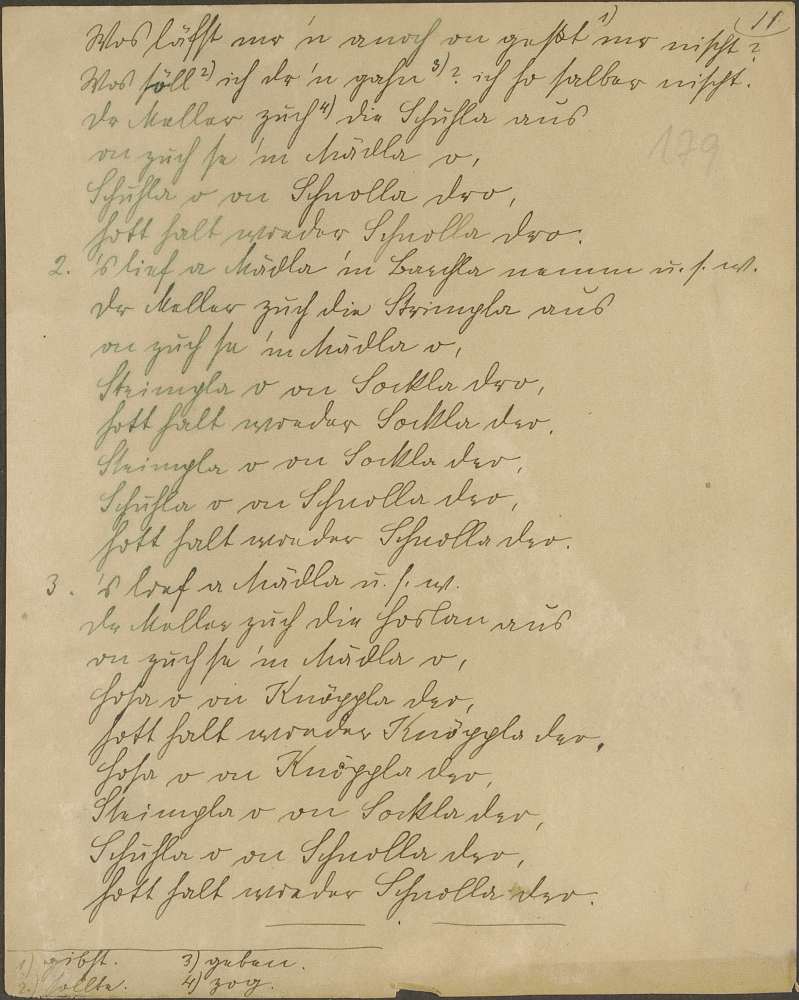 11
Wos läßt mr 'n anoch on gest 1) mr nischt?
Wos söll 2) ich dr'n gahn 3)? ich ho salber nischt.
Dr Meller zuch 4) die Schuhla aus
on zuch se 'm Mädla o,
179
Schuhla o on Schnolla dro,
hott halt wieder Schnolla dro.
2. 's lief a Mädla 'm Barchla nemm u. s. w.
Dr Meller zuch die Strimpla aus
on zuch se 'm Mädla o,
Strimpla o on Sockla dro,
hott halt wieder Sockla dro.
Strimpla o on Sockla dro,
Schuhla o on Schnolla dro,
hott halt wieder Schnolla dro.
3. 's lief a Mädla u. s. w.
Dr Meller zuch die Hoslan aus
on zuch se 'm Mädla o,
Hosa o on Knöppla dro,
hott halt wieder Knöppla dro.
Hosa o on Knöppla dro,
Strimpla o on Sockla dro,
Schuhla o on Schnolla dro,
hott halt wieder Schnolla dro.
1) gibst. 3) geben.
2) sollte. 4) zog.